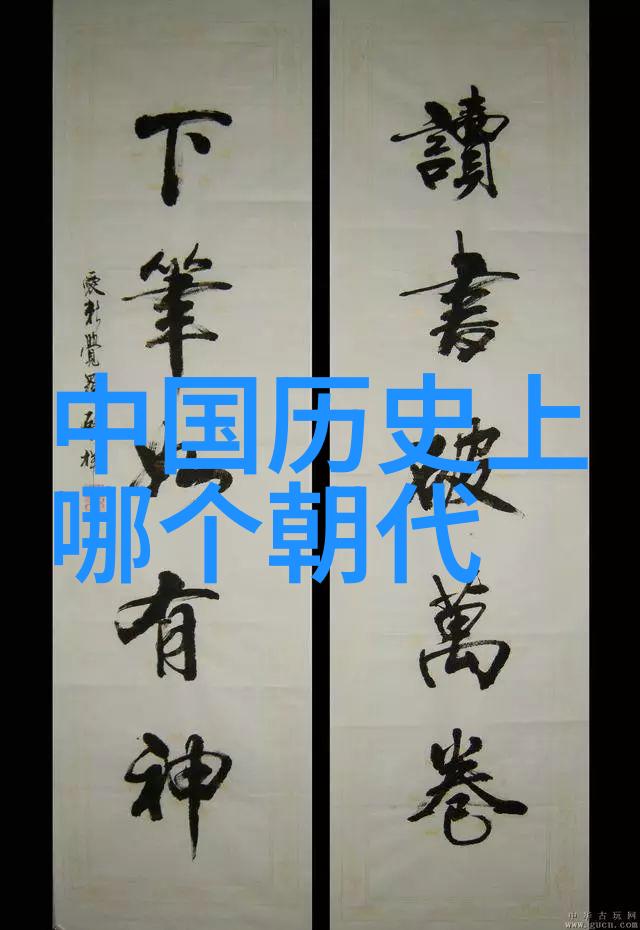 讀書破萬卷
下筆如有神
中国历史上
哪个朝代
中华古玩网
www.gucn.com